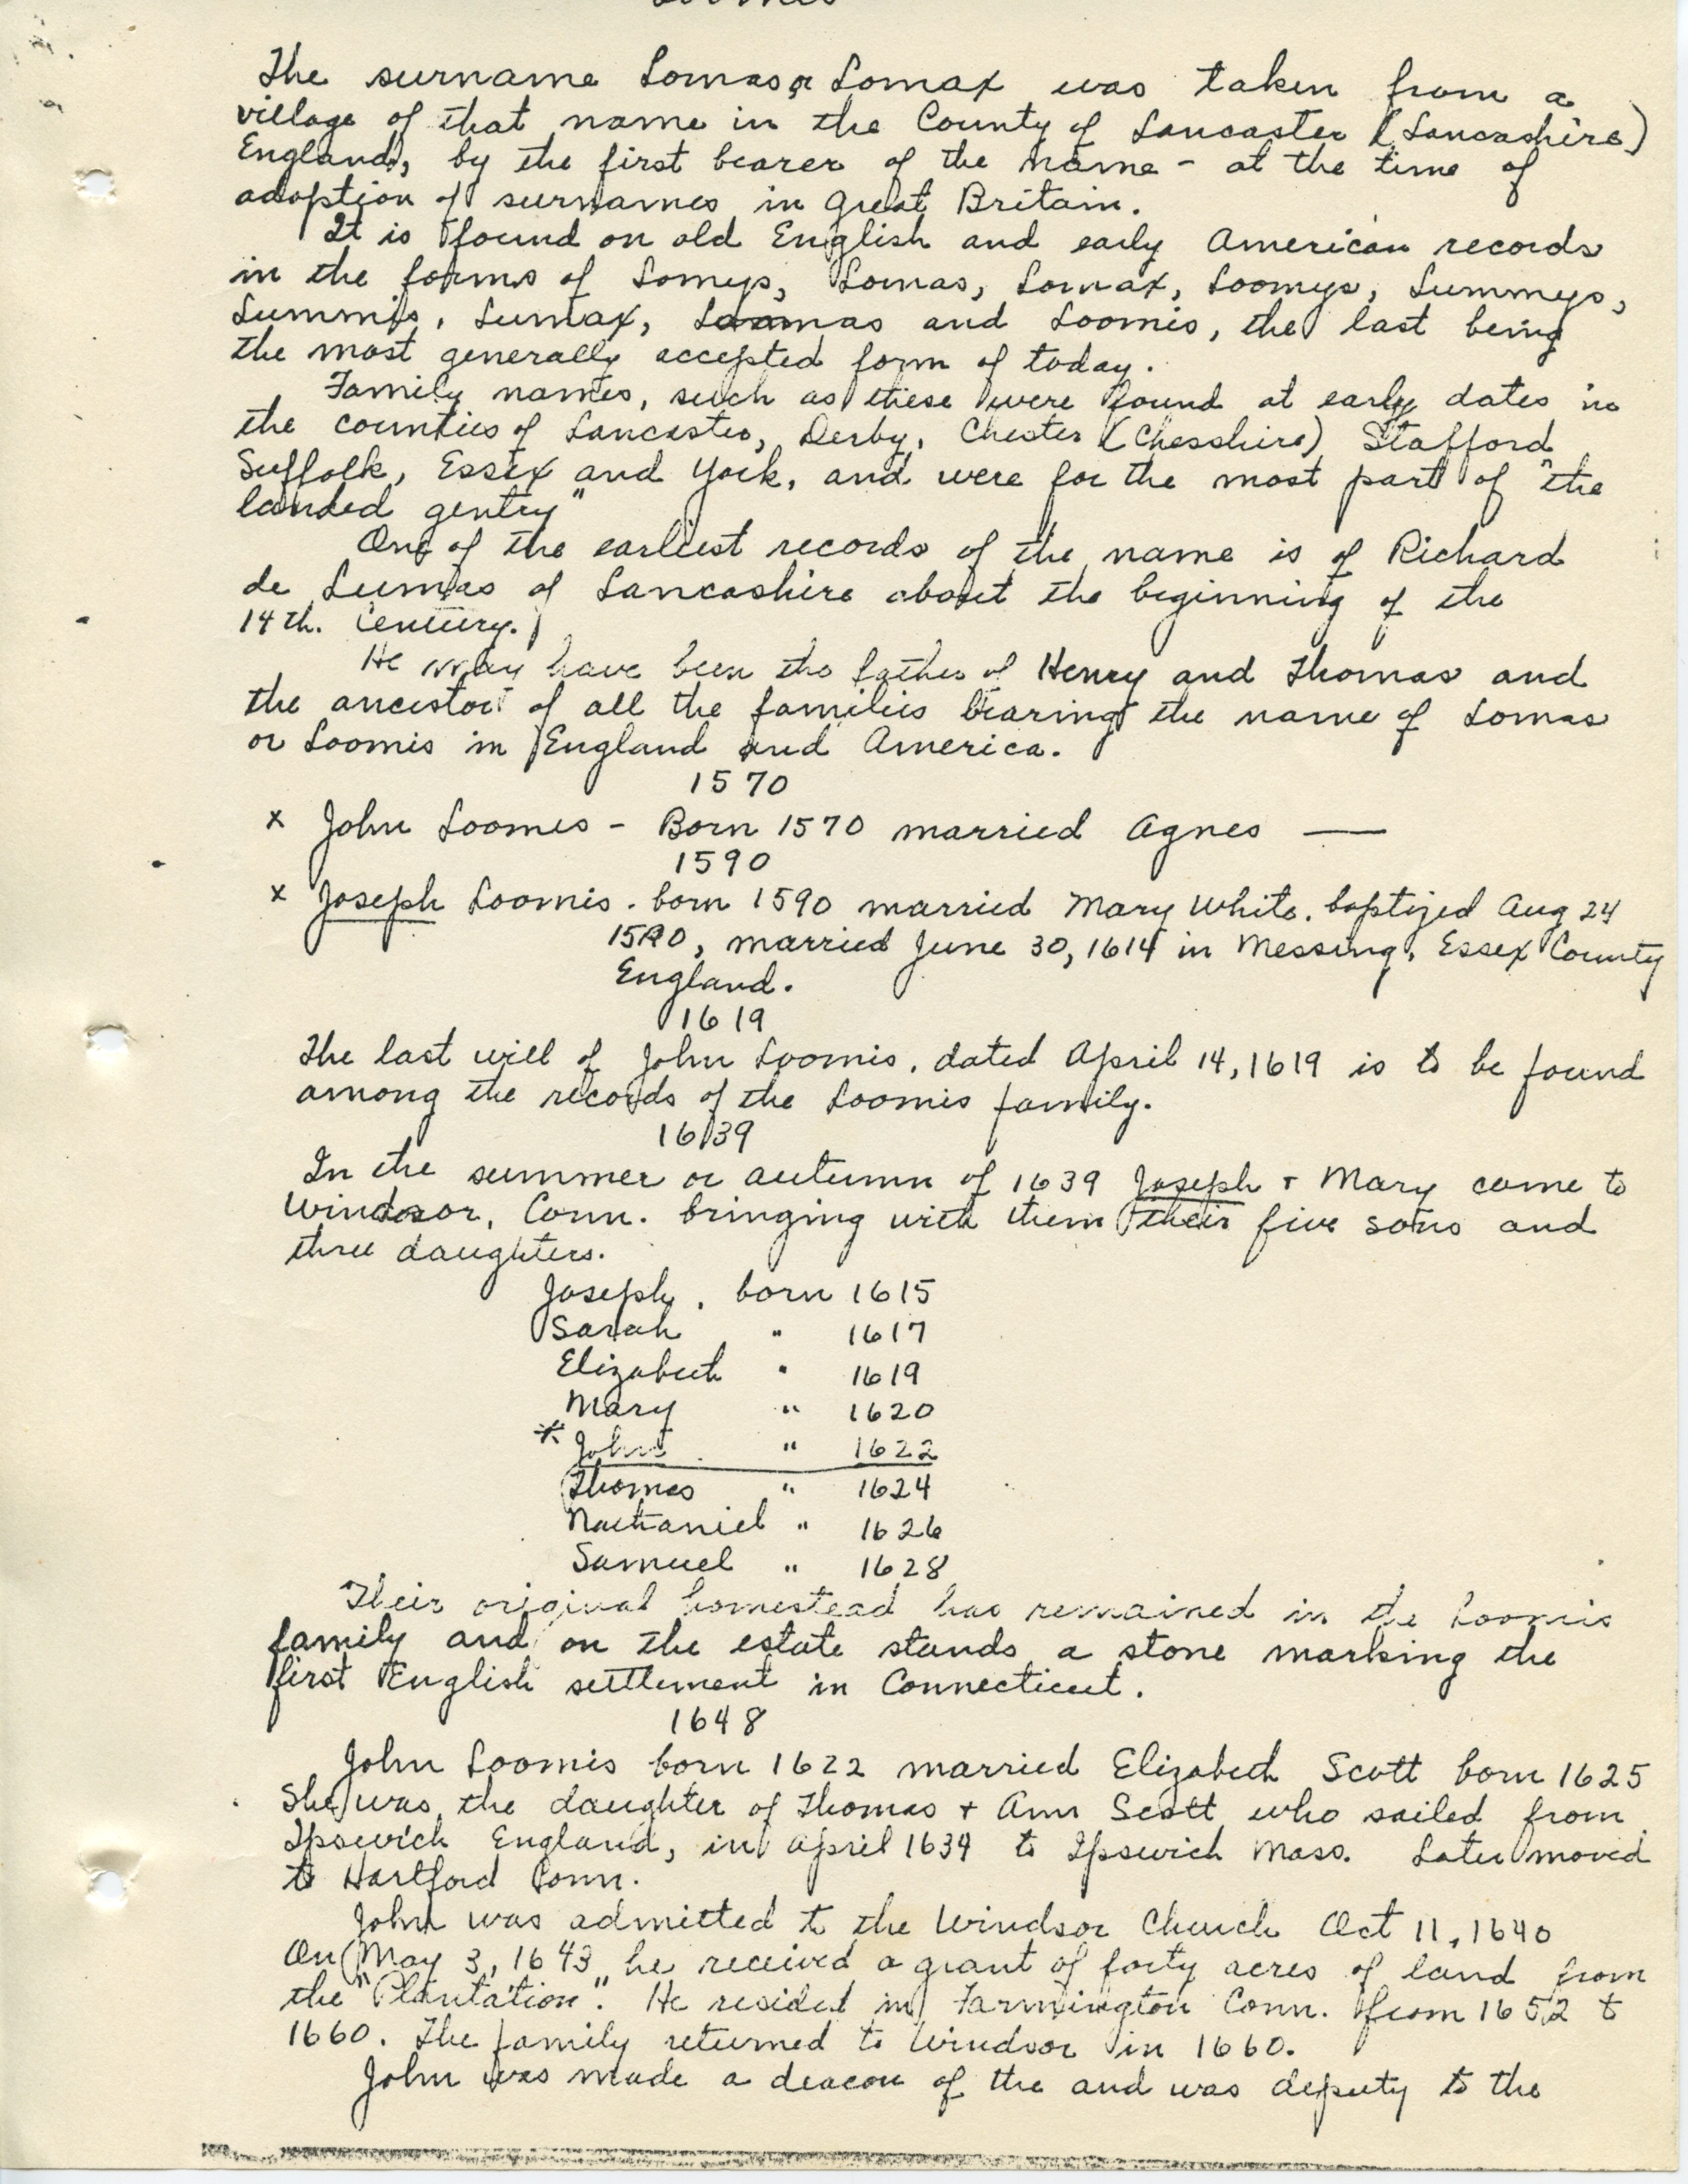 Loomis
The surname Lomas or Lomax was taken from a
village of that name in the County of Lancaster (Lancashire)
England, by the first bearer of the name - at the time of
adoption of surnames in Great Britain.
It is found on old English and early American records
in the forms of Lomys, Lomas, Lomax, Loomys, Lummys,
Lummis, Lumax, Loomas and Loomis, the last being
the most generally accepted form of today.
Family names, such as these were found at early dates in
the counties of Lancaster, Derby, Chester (Chesshire) Stafford
Suffolk, Essex and York, and were for the most part of "the
landed gentry"
One of the earliest records of the name is of Richard
de Lumas of Lancashire about the beginning of the
14th. Century.
He may have been the father of Henry and Thomas and
the ancestor of all the families bearing the name of Lomas
or Loomis in England and America.
1570
x John Loomes - Born 1570 married Agnes —
1590
x Joseph Loomis. born 1590 married Mary White. baptized Aug 24
1590, married June 30, 1614 in Messing, Essex County
England.
1619
The last will of John Loomis, dated April 14, 1619 is to be found
among the records of the Loomis family.
1639
In the summer or autumn of 1639 Joseph + Mary came to
Windsor, Conn. bringing with them their five sons and
three daughters.
Joseph, born 1615
Sarah " 1617
Elizabeth " 1619
Mary " 1620
* John " 1622
Thomas " 1624
Nathaniel " 1626
Samuel " 1628
Their original homestead has remained in the Loomis
family and on the estate stands a stone marking the
first English settlement in Connecticut.
1648
John Loomis born 1622 married Elizabeth Scott born 1625
She was the daughter of Thomas + Ann Scott who sailed from
Ipswich England, in April 1634 to Ipswich Mass. Later moved
to Hartford Conn.
John was admitted to the Windsor Church Oct 11, 1640
On May 3, 1643 he received a grant of forty acres of land from
the "Plantation". He resided in Farmington Conn. from 1652 to
1660. The family returned to Windsor in 1660.
John was made a deacon of the and was deputy to the